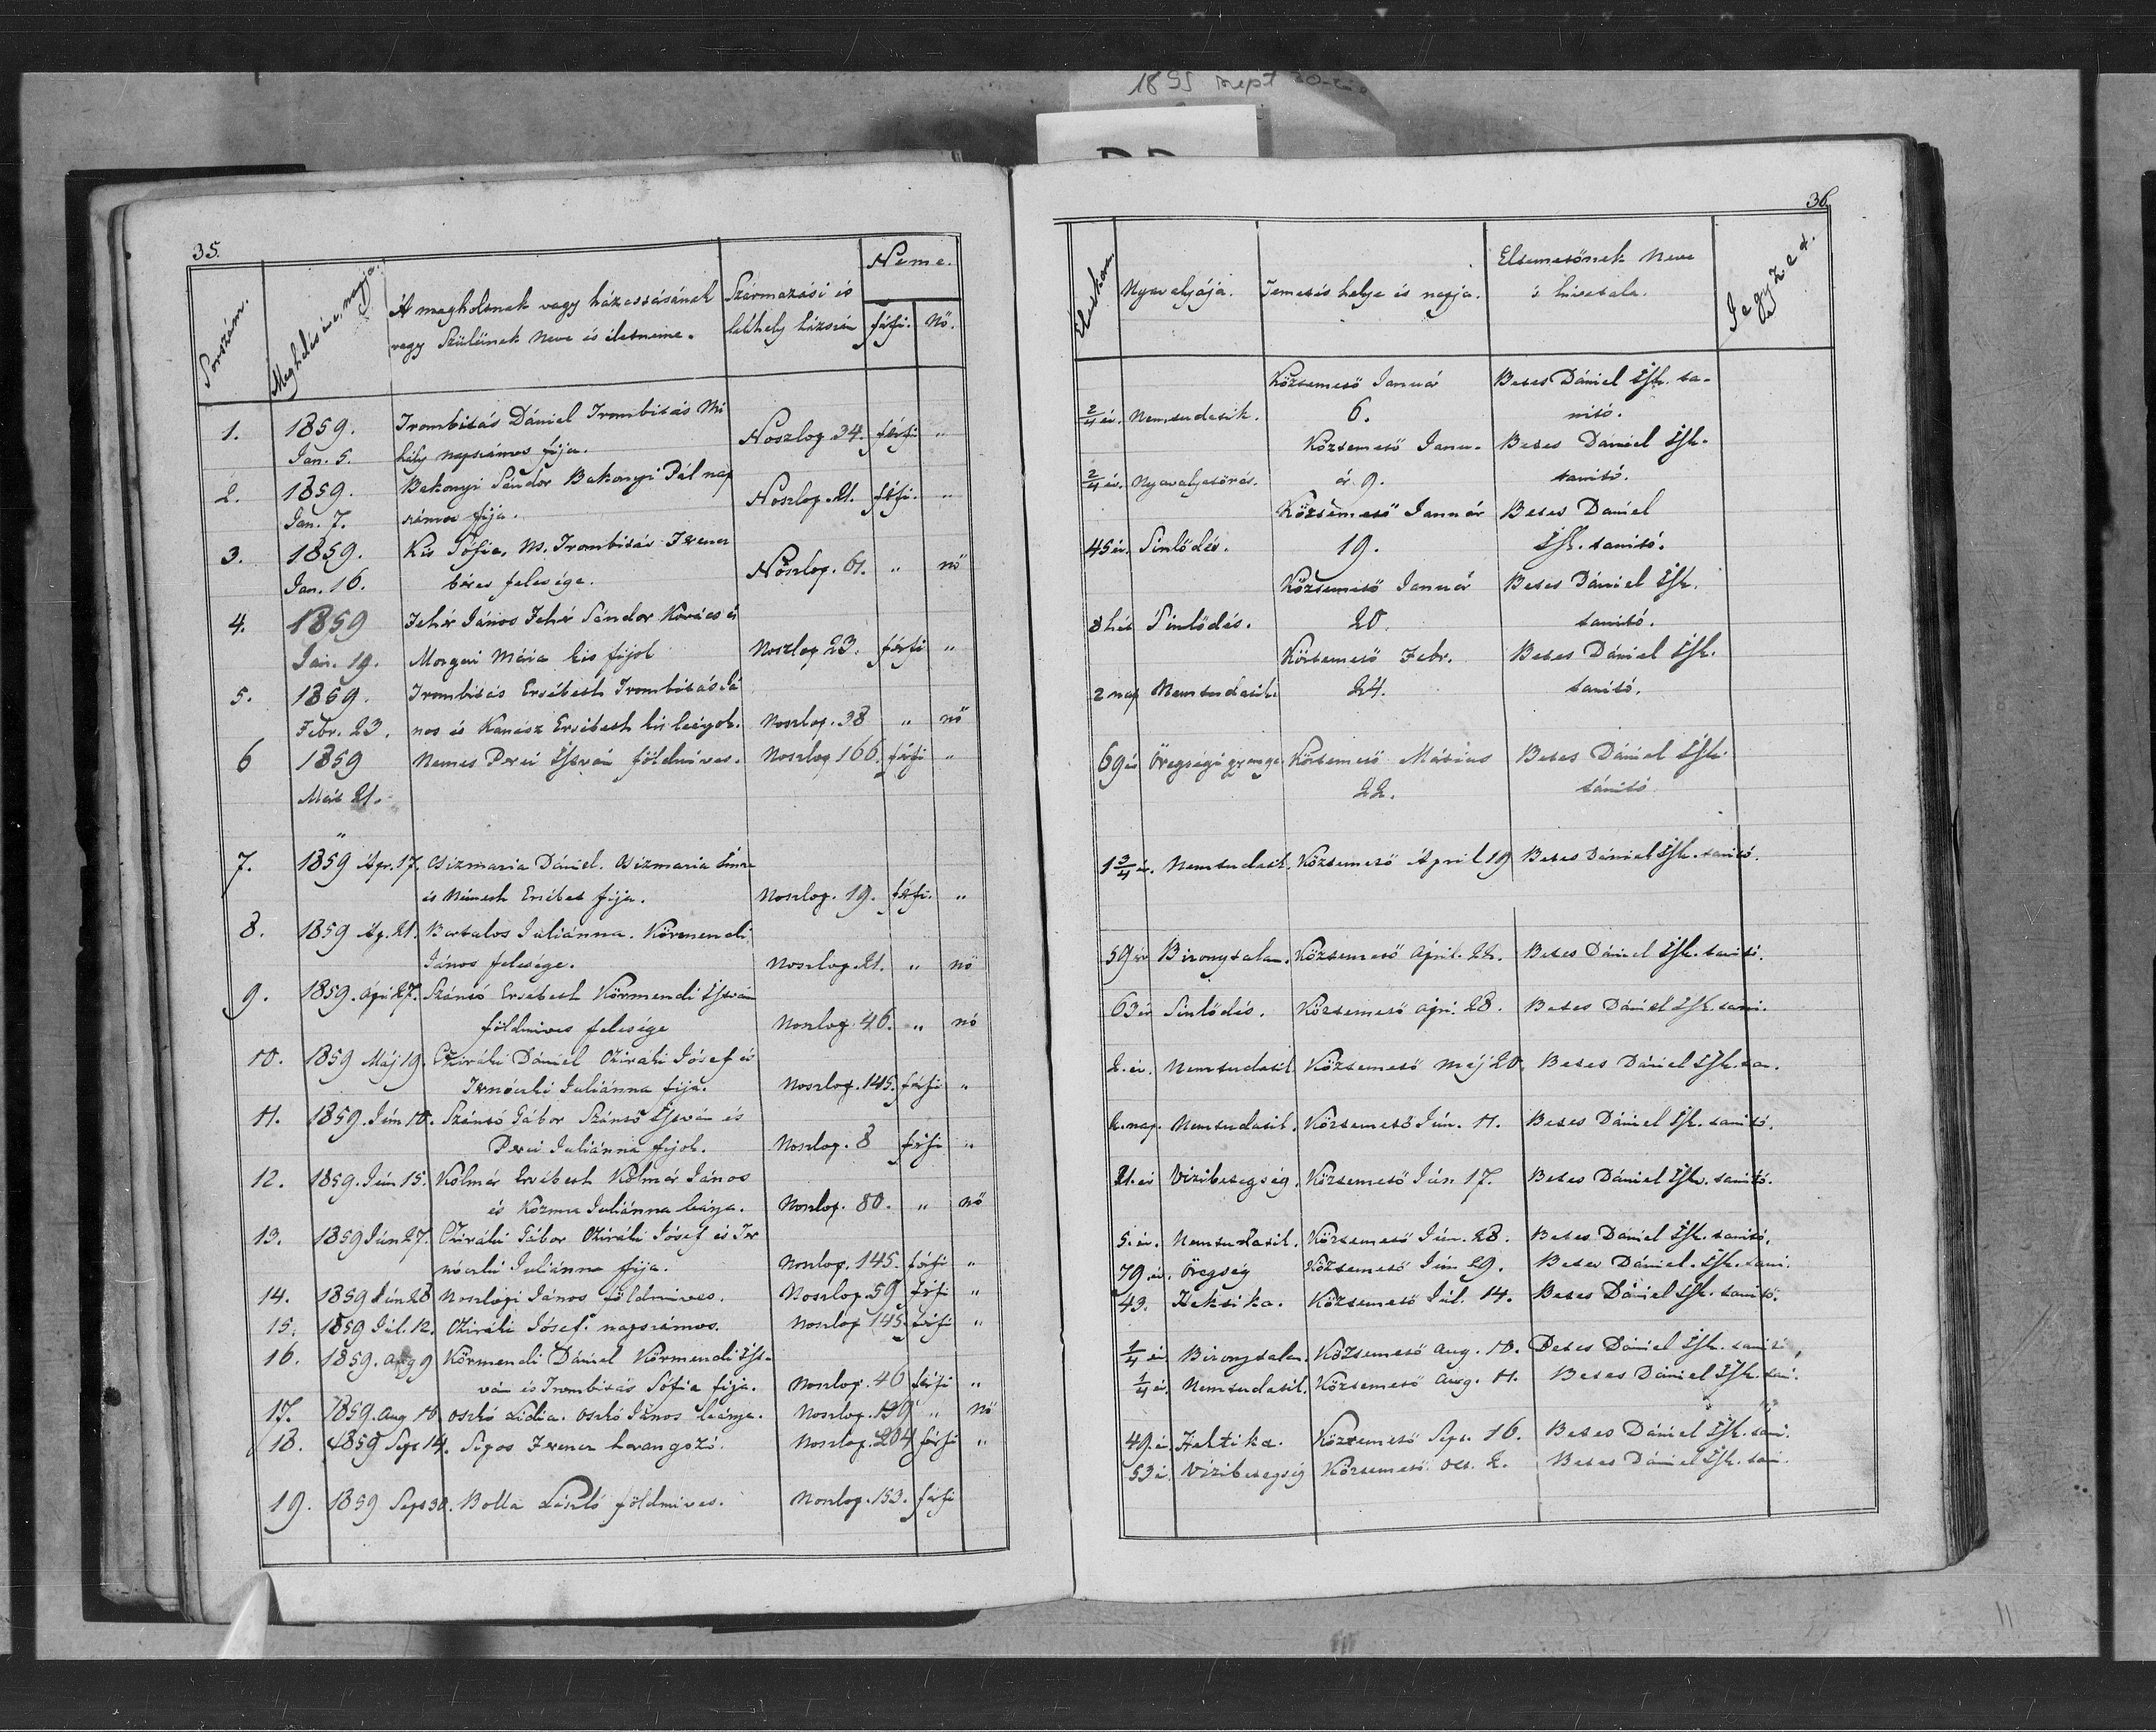 1895 sept 30-
35.
Sorszám.
Meghalás éve, napja.
A megholtnak vagy házastásának
vagy Szüleinek Neve és életneme.
Származási és
lakhely házszám
Neme.
férfi. Nő.
1. 1859. Trombitás Dániel Trombitás Mi
Jan. 5. hály napszámos fija. Noszlop 34. férfi „
2. 1859. Bakonyi Sándor Bakonyi Pál nap
Jan. 7. számos fija. Noszlop. 21. férfi. „
3. 1859. Kis Sófia, M. Trombitás Ferencz
Jan. 16. béres felesége. Noszlop. 61. „ nö
4. 1859 Fehér János Fehér Sándor Kovács és
Jan. 19. Morgavi Mária kis fijok Noszlop 23. férfi „
5. 1859. Trombitás Ersébeth Trombitás Já
Febr. 23. nos és Kanász Ersébeth kis leányok. Noszlop. 38 „ nö
6 1859 Nemes Perei István földmives. Noszlop 166. férfi „
Márt 21.
7. 1859 Ápr. 17. Csizmazia Dániel. Csizmazia Imre
és Németh Ersébet fija. Noszlop. 19. férfi. „
8. 1859 Áp. 21. Bartalos Juliánna. Körmendi
János felesége. Noszlop. 21. „ nö
9. 1859. Ápri 27. Szántó Ersébeth Körmendi István
földmives felesége Noszlop. 46. „ nö
10. 1859 Máj 19. Cziráki Dániel Cziraki Jósef és
Juliánna fija. Noszlop. 145. férfi „
11. 1859. Jún 10. Szántó Gábor Szántó István és
Perei Juliánna fijok. Noszlop. 8 férfi „
12. 1859. Jún 15. Kolmár Ersébeth Kolmár János
és Kozma Juliánna leánya. Noszlop. 80. „ nö
13. 1859 Jún 27. Cziráki Gábor Cziráki Jósef és
Juliánna fija. Noszlop. 145. férfi „
14. 1859 Jún 28 Noszlopi János földmives. Noszlop. 59 férfi „
15. 1859 Júl. 12. Cziráki Jósef. napszámos. Noszlop 145. férfi „
16. 1859. Aug 9 Körmendi Dániel Körmendi Ist-
ván és Trombitás Sófia fija. Noszlop. 46 férfi „
17. 1859. Aug 10. Oszkó Lidia. Oszkó János leánya. Noszlop. 139 „ nö
18. 1859 Sept 14. Sipos Ferencz harangozó. Noszlop. 204 férfi „
19. 1859 Sept 30. Bolla László földmives. Noszlop. 153. férfi
36.
Életkora.
Nyavalyája.
Temetés helye és napja.
Eltemetőnek Neve
s hivatala.
Jegyzet.
Köztemető Január Betes Dániel Isk. ta-
2/4 év. Nemtudatik. 6. nitó.
Köztemető Janu- Betes Dániel Isk.
2/4 év. Nyavalyatörés. ár 9. tanitó.
Köztemető Január Betes Dániel
45 év. Sinlődés. 19. Isk. tanitó.
Köztemető Január Betes Dániel Isk.
8 hét Sinlődés. 20. tanitó.
Köztemető Febr. Betes Dániel Isk.
2 nap Nemtudatik 24. tanitó.
69 év Öregségi gyenge Köztemető Mátius Betes Dániel Isk.
22. tánitó
1 3/4 év. Nemtudatik. Köztemető Ápril 19 Betes Dániel Isk. tanitó.
59 év Bizonytalan. Köztemető April. 22. Betes Dániel Isk. tanitó.
63 év Sinlődés. Köztemető Apri. 28. Betes Dániel Isk. tani.
2. év. Nemtudatik Köztemető Máj 20. Betes Dániel Isk. ta.
2. nap. Nemtudatik. Köztemető Jún. 11. Betes Dániel Isk. tanitó.
21. év Vizibetegség. Köztemető Jún. 17. Betes Dániel Isk. tanitó.
5. év. Nemtudatik. Köztemető Jún. 28. Betes Dániel Isk. tanitó.
79. év. Öregség Köztemető Jún 29. Betes Dániel. Isk. tani.
43. Hektika. Köztemető Júl. 14. Betes Dániel Isk. tanitó.
1/4 év Bizonytalan. Köztemető Aug. 10. Betes Dániel Isk. tanitó,
1/4 év. Nemtudatik. Köztemető Aug. 11. Betes Dániel Isk. tani.
49. é. Hektika. Köztemető Sept. 16. Betes Dániel Isk. tani.
53 é. Vizibetegség Köztemető Oct. 2. Betes Dániel Isk. tani.